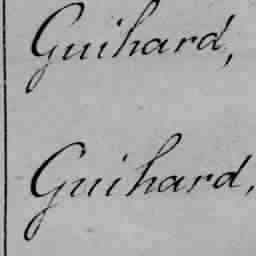 Guihard,
Guihard,